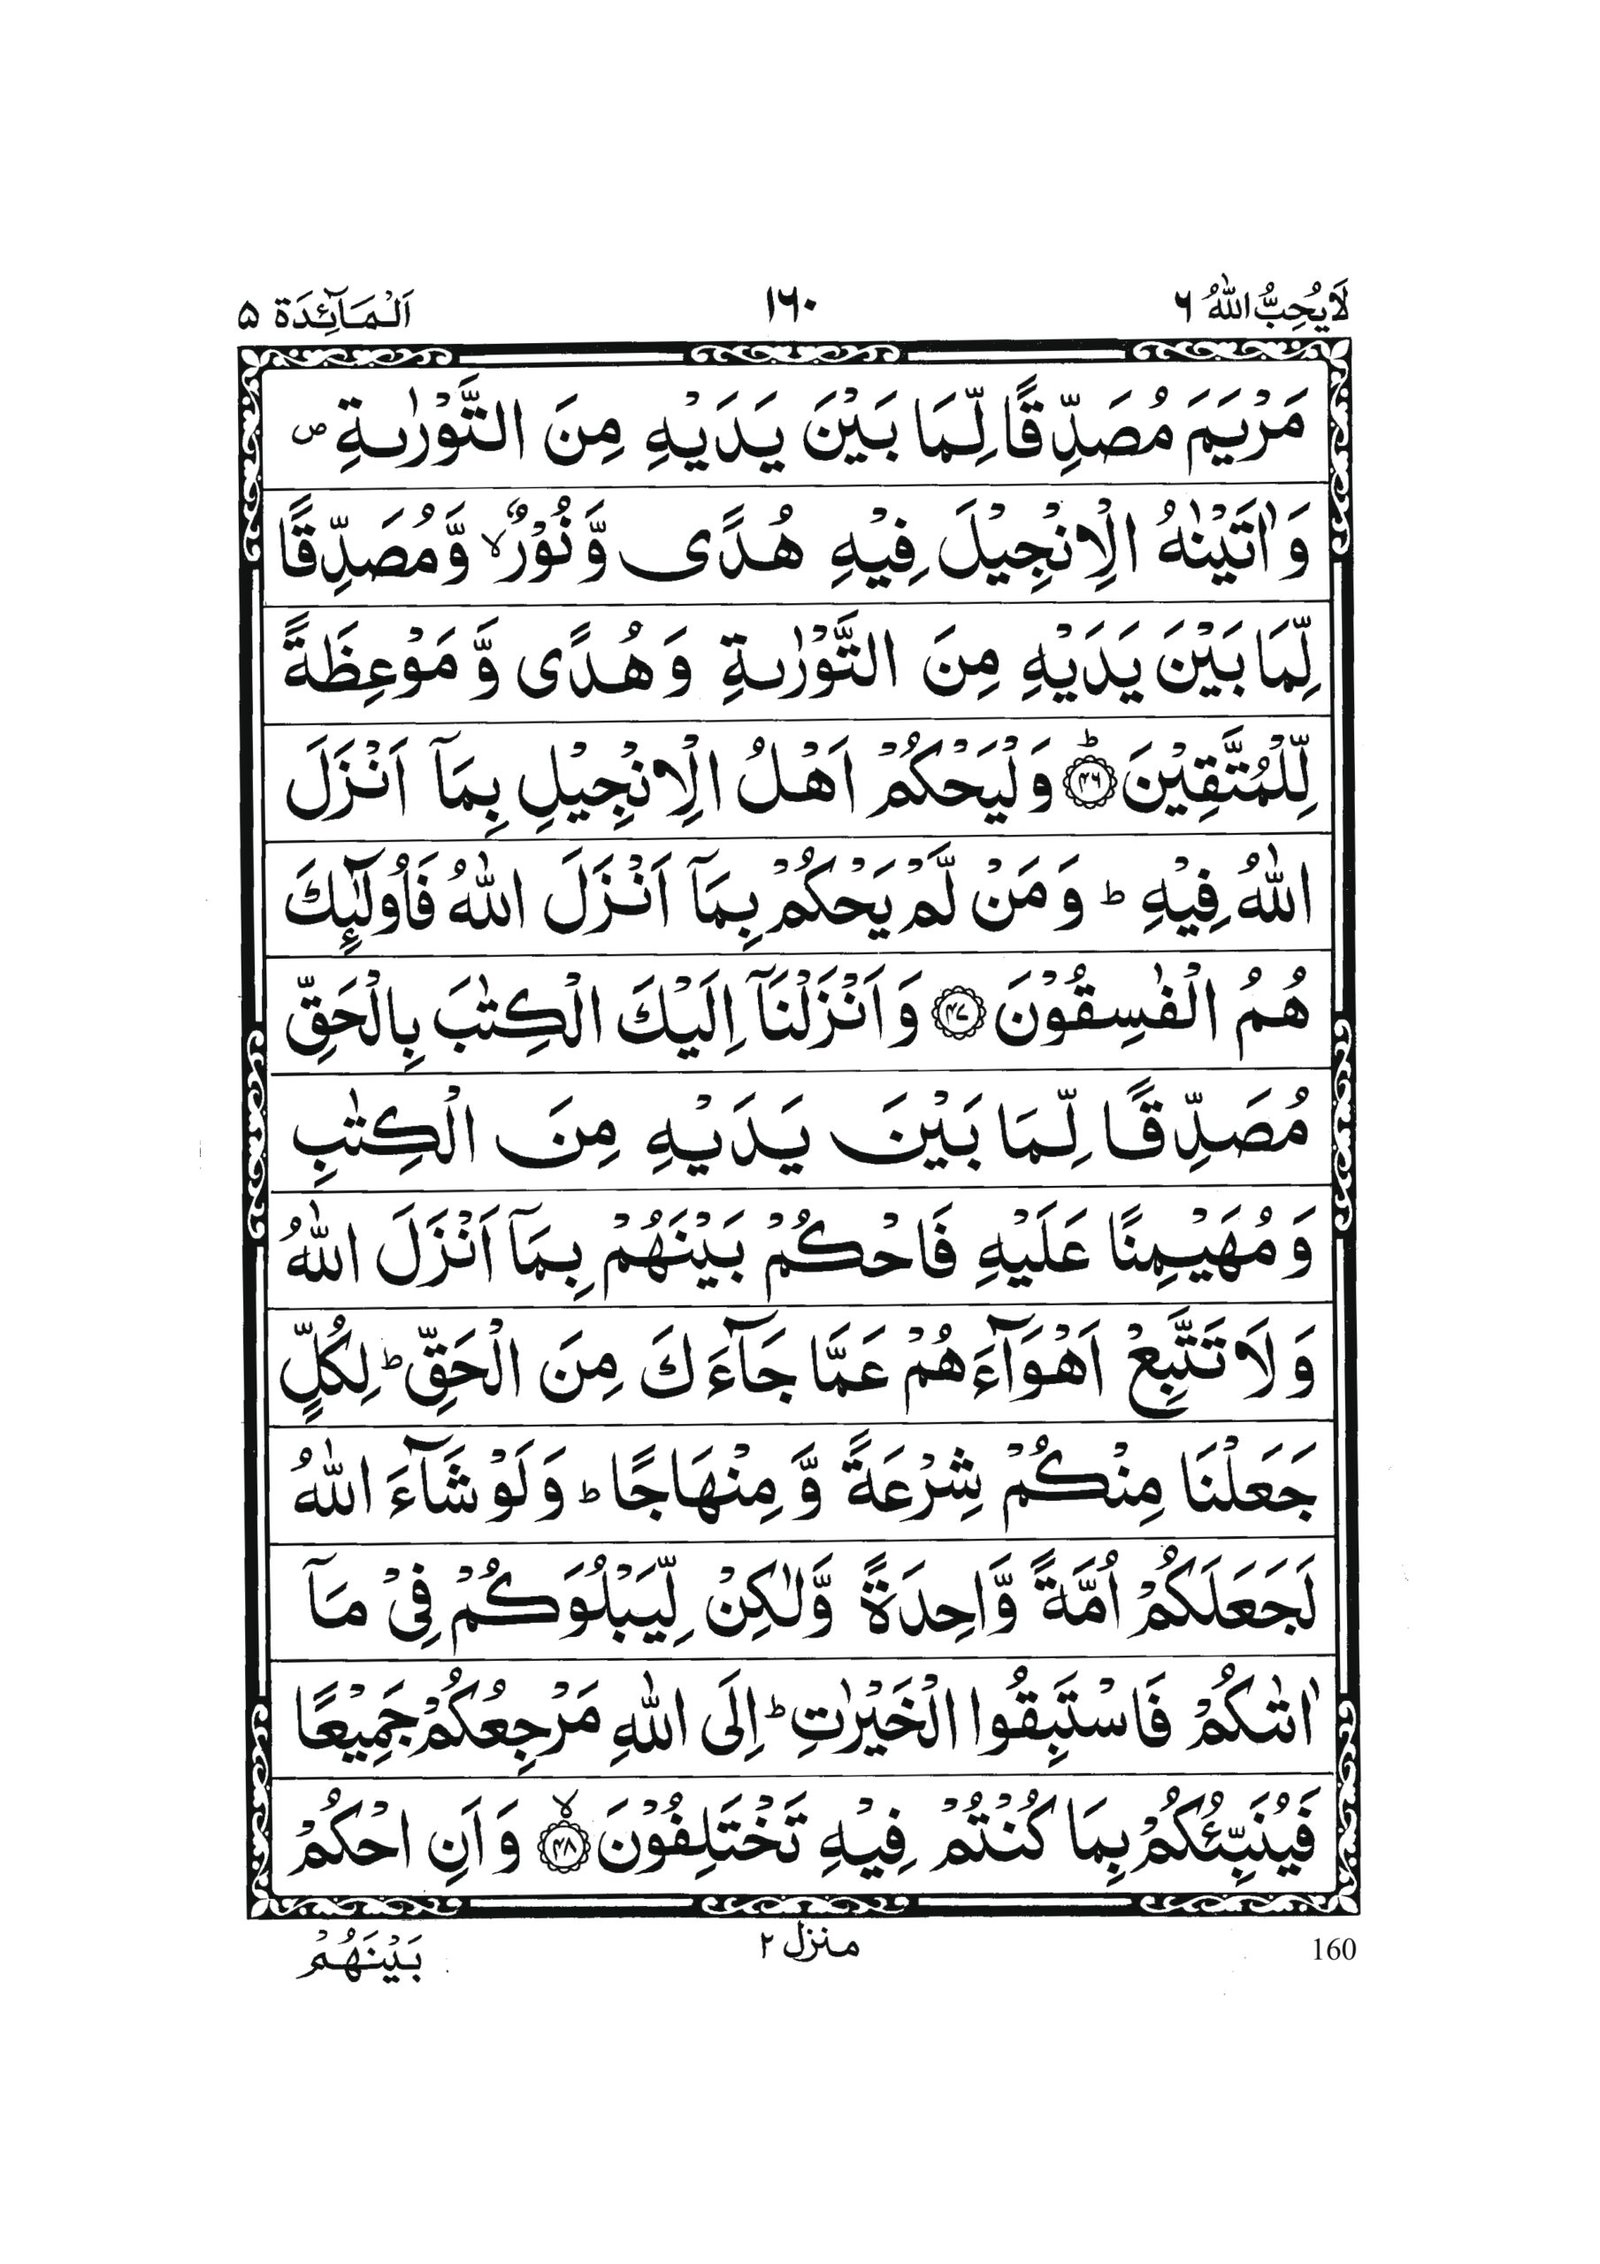 لَا يُحِبُّ اللّٰهُ ٦ ١٦٠ اَلْمَآئِدَة ۵
مَرْيَمَ مُصَدِّقًا لِّمَا بَيْنَ يَدَيْهِ مِنَ التَّوْرٰىةِ ۪
وَاٰتَيْنٰهُ الْاِنْجِيْلَ فِيْهِ هُدًى وَّنُوْرٌ ۙ وَّمُصَدِّقًا
لِّمَا بَيْنَ يَدَيْهِ مِنَ التَّوْرٰىةِ وَهُدًى وَّمَوْعِظَةً
لِّلْمُتَّقِيْنَ ؕ ﴿۴۶﴾ وَلْيَحْكُمْ اَهْلُ الْاِنْجِيْلِ بِمَآ اَنْزَلَ
اللّٰهُ فِيْهِ ؕ وَمَنْ لَّمْ يَحْكُمْ بِمَآ اَنْزَلَ اللّٰهُ فَاُولٰٓئِكَ
هُمُ الْفٰسِقُوْنَ ﴿۴۷﴾ وَاَنْزَلْنَآ اِلَيْكَ الْكِتٰبَ بِالْحَقِّ
مُصَدِّقًا لِّمَا بَيْنَ يَدَيْهِ مِنَ الْكِتٰبِ
وَمُهَيْمِنًا عَلَيْهِ فَاحْكُمْ بَيْنَهُمْ بِمَآ اَنْزَلَ اللّٰهُ
وَلَا تَتَّبِعْ اَهْوَآءَهُمْ عَمَّا جَآءَكَ مِنَ الْحَقِّ ؕ لِكُلٍّ
جَعَلْنَا مِنْكُمْ شِرْعَةً وَّمِنْهَاجًا ؕ وَلَوْ شَآءَ اللّٰهُ
لَجَعَلَكُمْ اُمَّةً وَّاحِدَةً وَّلٰكِنْ لِّيَبْلُوَكُمْ فِيْ مَآ
اٰتٰىكُمْ فَاسْتَبِقُوا الْخَيْرٰتِ ؕ اِلَى اللّٰهِ مَرْجِعُكُمْ جَمِيْعًا
فَيُنَبِّئُكُمْ بِمَا كُنْتُمْ فِيْهِ تَخْتَلِفُوْنَ ۙ ﴿۴۸﴾ وَاَنِ احْكُمْ
160 منزل ٢ بَيْنَهُمْ